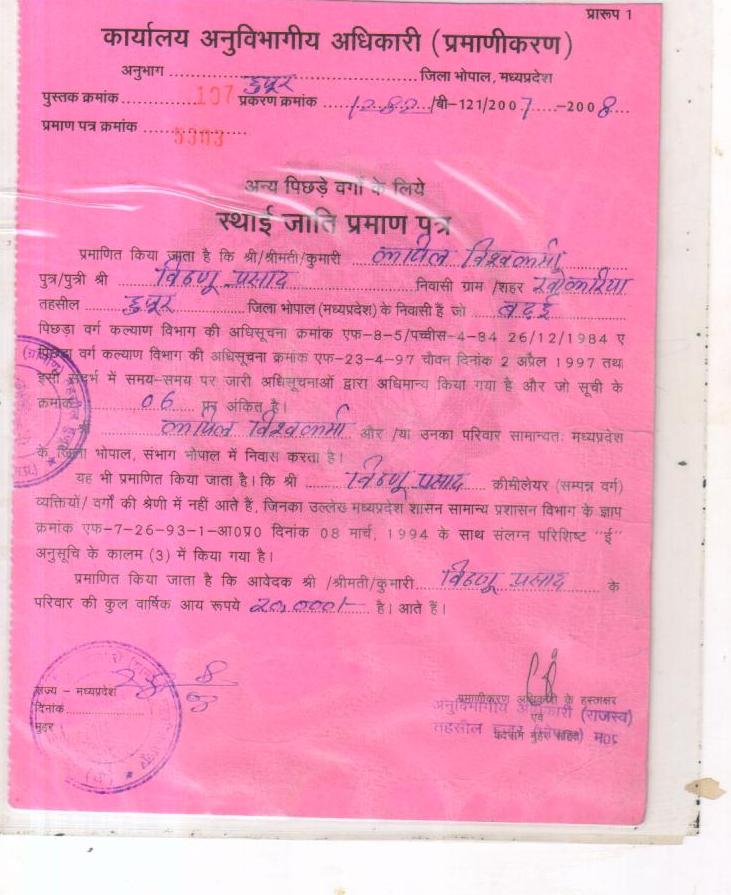 प्रारूप 1
कार्यालय अनुविभागीय अधिकारी (प्रमाणीकरण)
अनुभाग ........ हुजूर ........ जिला भोपाल, मध्यप्रदेश
पुस्तक क्रमांक ........ 107 प्रकरण क्रमांक ........ /बी-121/2007 ..... -2008 ....
प्रमाण पत्र क्रमांक ........ 5303
अन्य पिछड़े वर्गो के लिये
स्थाई जाति प्रमाण पत्र
प्रमाणित किया जाता है कि श्री/श्रीमती/कुमारी कपिल विश्वकर्मा
पुत्र/पुत्री श्री विष्णु प्रसाद निवासी ग्राम /शहर
तहसील हुजूर जिला भोपाल (मध्यप्रदेश) के निवासी हैं जो बढई
पिछड़ा वर्ग कल्याण विभाग की अधिसूचना क्रमांक एफ-8-5/पच्चीस-4-84 26/12/1984 ए
पिछड़ा वर्ग कल्याण विभाग की अधिसूचना क्रमांक एफ-23-4-97 चौवन दिनांक 2 अप्रैल 1997 तथा
इसी संदर्भ में समय-समय पर जारी अधिसूचनाओं द्वारा अधिमान्य किया गया है और जो सूची के
क्रमांक 06 पर अंकित है।
कपिल विश्वकर्मा और /या उनका परिवार सामान्यतः मध्यप्रदेश
के जिला भोपाल, संभाग भोपाल में निवास करता है।
यह भी प्रमाणित किया जाता है। कि श्री विष्णु प्रसाद क्रीमीलेयर (सम्पन्न वर्ग)
व्यक्तियों/ वर्गों की श्रेणी में नहीं आते हैं, जिनका उल्लेख मध्यप्रदेश शासन सामान्य प्रशासन विभाग के ज्ञाप
क्रमांक एफ-7-26-93-1-आ0प्र0 दिनांक 08 मार्च, 1994 के साथ संलग्न परिशिष्ट "ई"
अनुसूचि के कालम (3) में किया गया है।
प्रमाणित किया जाता है कि आवेदक श्री /श्रीमती/कुमारी विष्णु प्रसाद के
परिवार की कुल वार्षिक आय रूपये 20,000/- है। आते हैं।
राज्य - मध्यप्रदेश
दिनांक
मुहर
प्रमाणीकरण अधिकारी के हस्ताक्षर
अनुविभागीय अधिकारी (राजस्व)
एवं
तहसील हुजूर
पदनाम मुहर सहित